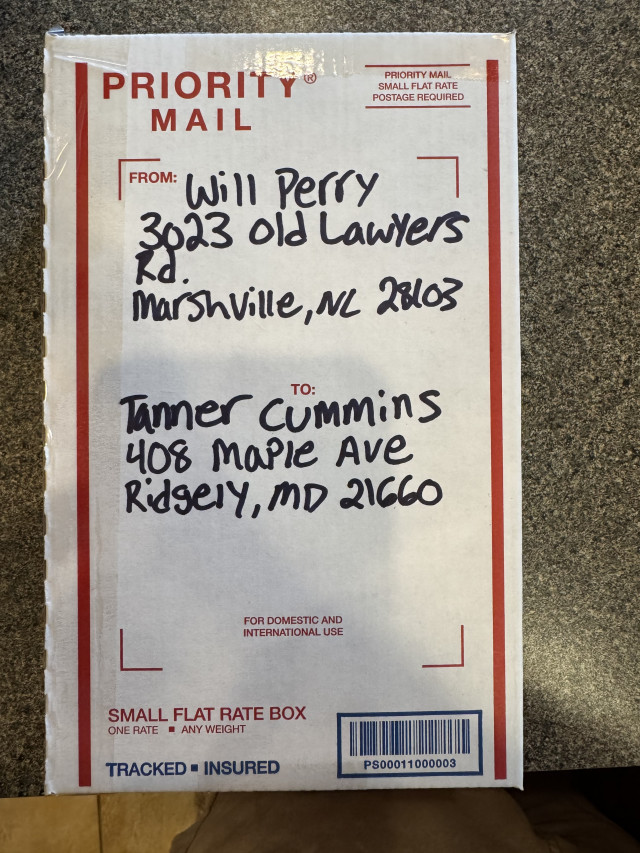 PRIORITY®
MAIL
PRIORITY MAIL
SMALL FLAT RATE
POSTAGE REQUIRED
FROM: Will Perry
3023 Old Lawyers
Rd.
Marshville, NC 28103
TO:
Tanner Cummins
408 Maple Ave
Ridgely, MD 21660
FOR DOMESTIC AND
INTERNATIONAL USE
SMALL FLAT RATE BOX
ONE RATE ▪ ANY WEIGHT
TRACKED ▪ INSURED
PS00011000003